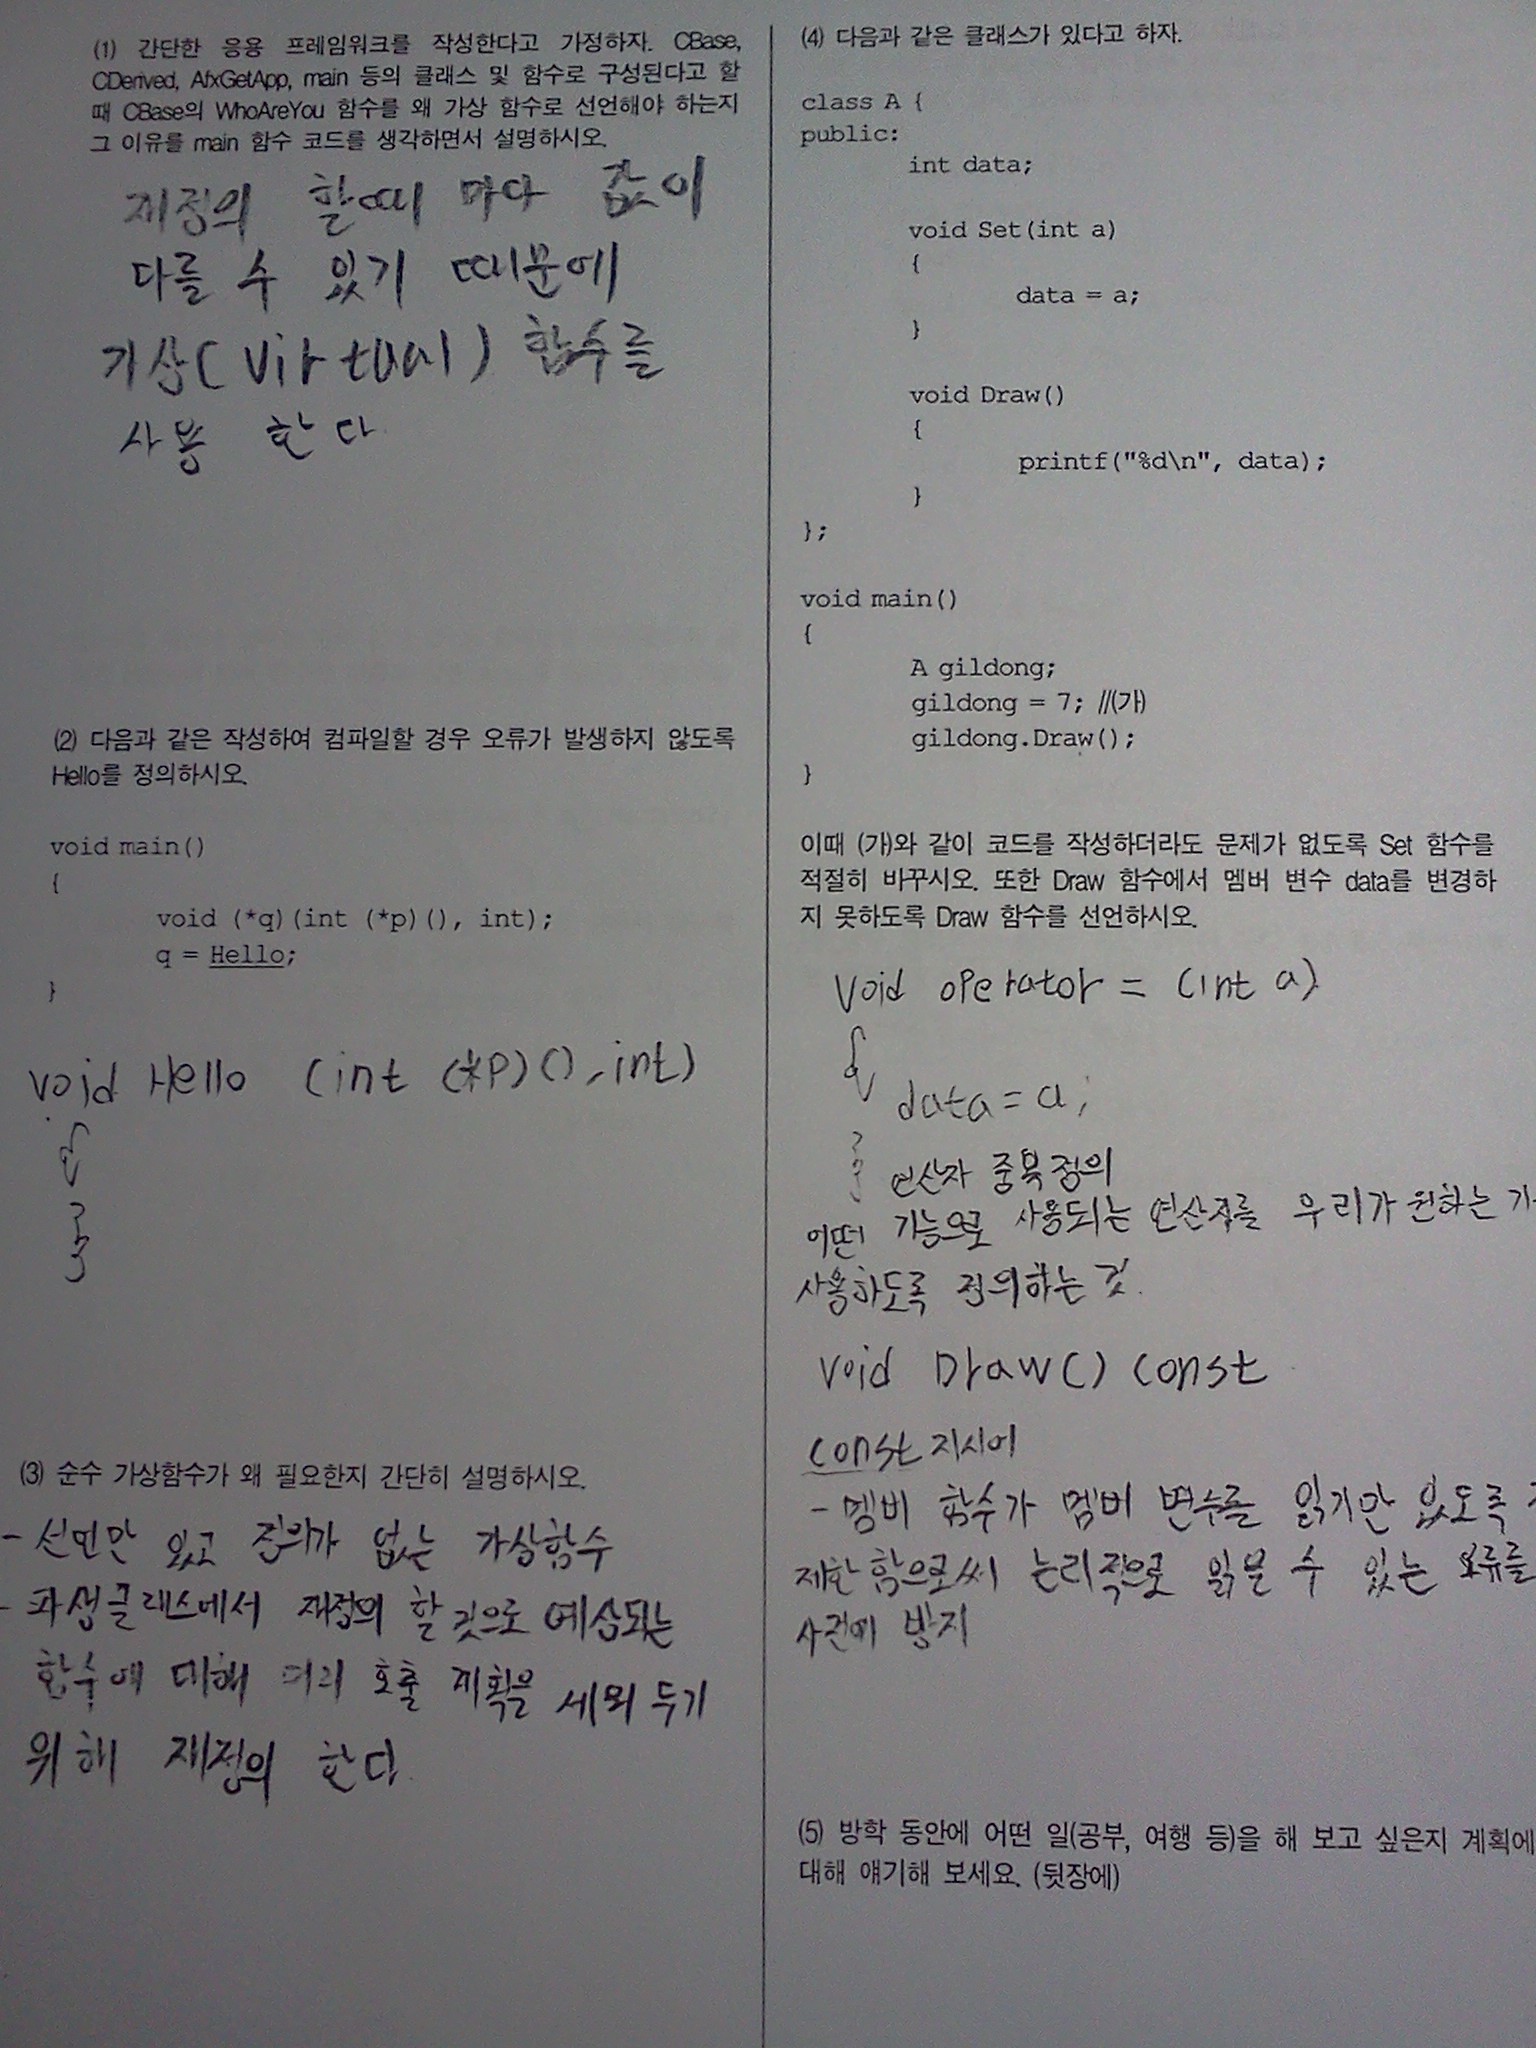 (1) 간단한 응용 프레임워크를 작성한다고 가정하자. CBase,
CDerived, AfxGetApp, main 등의 클래스 및 함수로 구성된다고 할
때 CBase의 WhoAreYou 함수를 왜 가상 함수로 선언해야 하는지
그 이유를 main 함수 코드를 생각하면서 설명하시오.
재정의 할때 마다 값이
다를 수 있기 때문에
가상(virtual) 함수를
사용 한다
(2) 다음과 같은 작성하여 컴파일할 경우 오류가 발생하지 않도록
Hello를 정의하시오.
void main()
{
void (*q)(int (*p)(), int);
q = Hello;
}
void Hello (int (*p)(), int)
{
}
(3) 순수 가상함수가 왜 필요한지 간단히 설명하시오.
- 선언만 있고 정의가 없는 가상함수
- 파생클래스에서 재정의 할 것으로 예상되는
함수에 대해 미리 호출 계획을 세워 두기
위해 재정의 한다.
(4) 다음과 같은 클래스가 있다고 하자.
class A {
public:
int data;
void Set(int a)
{
data = a;
}
void Draw()
{
printf("%d\n", data);
}
};
void main()
{
A gildong;
gildong = 7; //(가)
gildong.Draw();
}
이때 (가)와 같이 코드를 작성하더라도 문제가 없도록 Set 함수를
적절히 바꾸시오. 또한 Draw 함수에서 멤버 변수 data를 변경하
지 못하도록 Draw 함수를 선언하시오.
void operator = (int a)
{
data = a;
}
연산자 중복정의
어떤 기능으로 사용되는 연산자를 우리가 원하는
사용하도록 정의하는 것.
void Draw() const
const 지시어
- 멤버 함수가 멤버 변수를 읽기만 있도록
제한함으로써 논리적으로 읽을 수 있는 오류를
사전에 방지
(5) 방학 동안에 어떤 일(공부, 여행 등)을 해 보고 싶은지 계획에
대해 얘기해 보세요. (뒷장에)